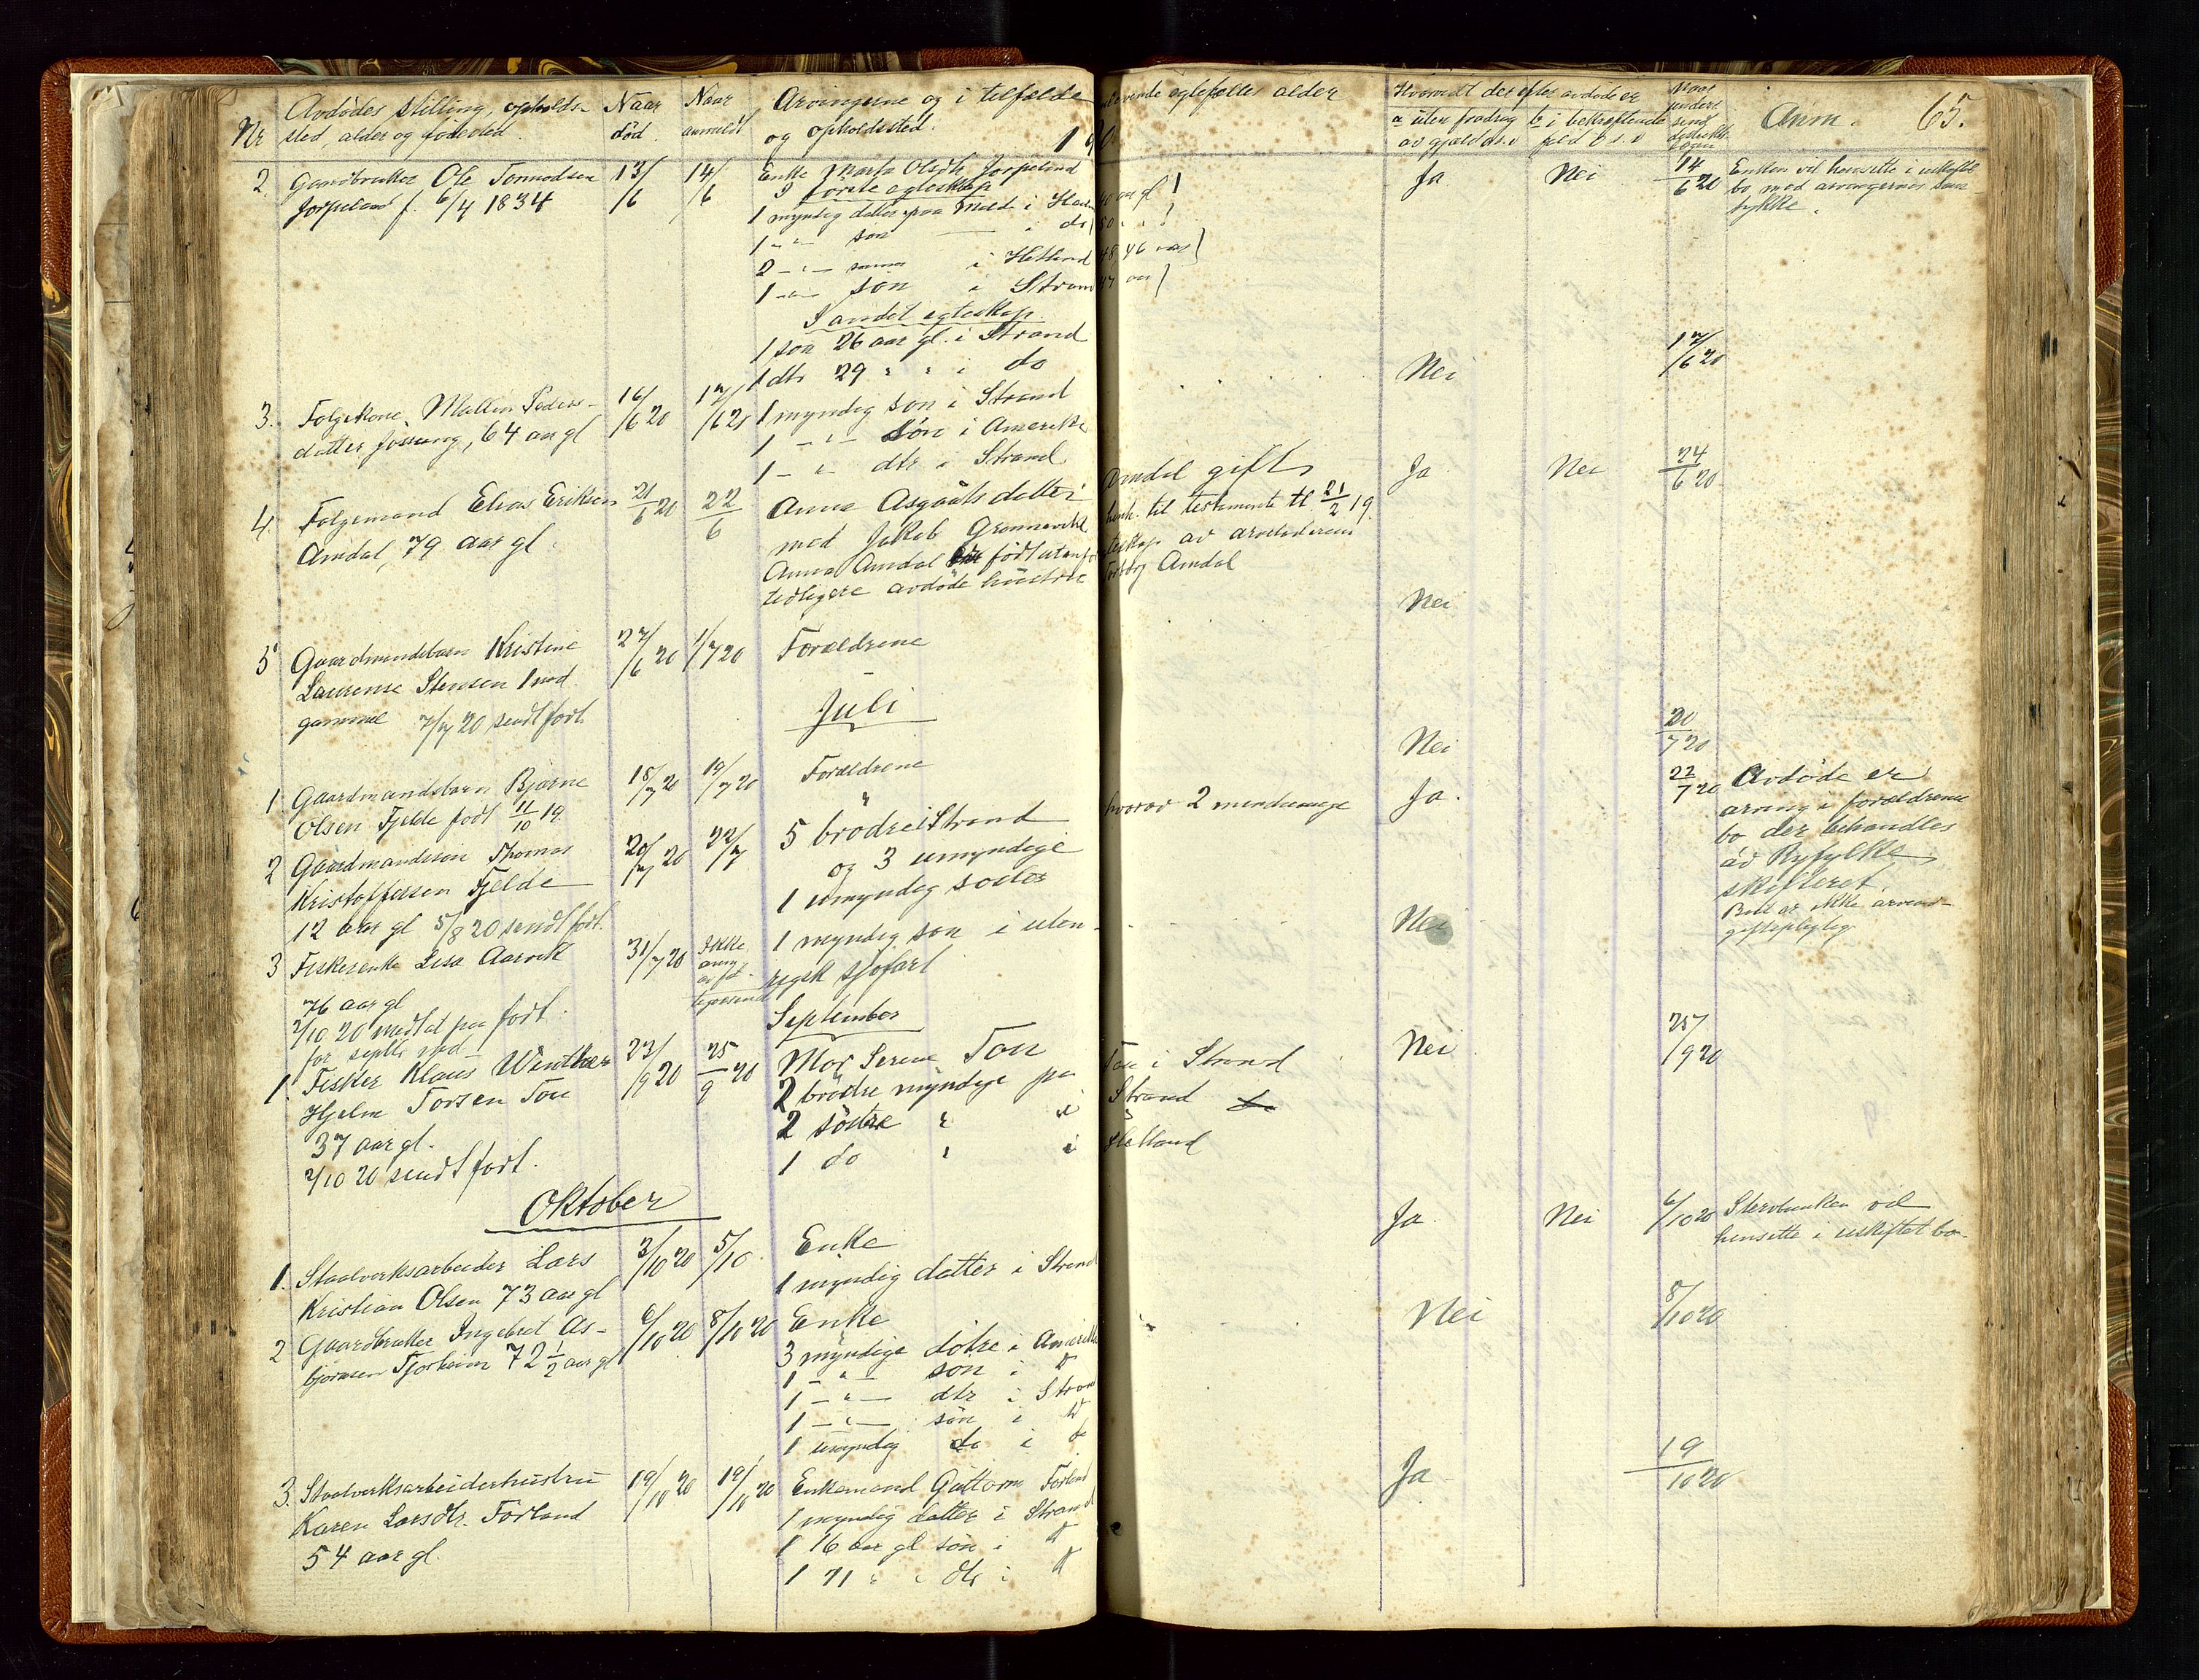 Nr Avdødes stilling, opholds- Naar Naar Arvingerne og i tilfælde levende egtefælles alder Hvorvidt det efter avdøde er Naar Anm. 65.
sted, alder og fødested. død. anmeldt og opholdssted. a uten fradrag b i bekræftende
av gjæld o.s.v
2 Gaardbruker Ole Tormodsen 13/6 14/6 Enke Marta Olsdtr Jørpeland Ja Nei 14/6 20 Enken vil hensitte i uskiftet
Jørpeland f. 6/4 1834 I første egteskap bo med arvingernes sam-
1 myndig datter paa Meld i aar gl tykke.
1 - " - søn i do
2 - " - sønner i Hetland 48 46 aar
1 - " - søn i Strand 47 aar
I andet egteskap.
1 søn 26 aar gl. i Strand
1 dtr 29 " " i do
3. Følgekone Mallin Peders- 16/6 20 17/6 20 1 myndig søn i Strand Nei 17/6 20
datter Jøssang, 64 aar gl 1 - " - søn i Amerika
1 - " dtr i Strand
4. Følgemand Elias Eriksen 21/6 20 22/6 Anna Asgautsdatter Amdal gift Ja Nei 24/6 20
Amdal, 79 aar gl. med Jakob Grønnevik henh. til testamente tl 21/2 19.
Anna Amdal født utenfor egteskap av
tidligere avdøde hustru Torborg Amdal
5 Gaardmandsbarn Kristine 27/6 20 1/7 20 Forældrene Nei
Laurense Stensen 1 mnd
gammel 7/7 20 sendt fort.
Juli
1 Gaardmandsbarn Bjarne 18/7 20 19/7 20 Forældrene Nei 20/7 20
Olsen Fjelde født 11/10 19
2 Gaardmandssøn Thomas 20/7 20 22/7 5 brødre i Strand hvorav 2 mindreaarige Ja. 22/7 20 Avdøde er
Kristoffersen Fjelde og 3 umyndige arving i forældrenes
12 aar gl 5/8 20 sendt fort. 1 umyndig søster bo der behandles
av Ryfylke
skifteret.
Boet er ikke arveav-
giftspligtig.
3 Fiskerenke Lisa Aarvik 31/7 20 Ikke 1 myndig søn i uten- Nei
76 aar gl rigsk sjøfart
2/10 20 medtat paa fort.
for septbr md
September
1. Fisker Klaus Winther 23/9 20 25/9 20 Mor Serene Tou Tou i Strand Nei 25/9 20
Hjelm Torsen Tou 2 brødre myndige pa Strand
37 aar gl. 2 søstre " i
2/10 20 sendt fort. 1 do " i Hetland
Oktober
1. Staalverksarbeider Lars 3/10 20 5/10 Enke Ja. Nei 6/10 20 Stervbuenken vil
Kristian Olsen 73 aar gl 1 myndig datter i Strand hensitte i uskiftet bo.
2 Gaardbruker Ingebret As- 6/10 20 8/10 20 Enke Nei 8/10 20
bjørnsen Fjorheim 72 1/2 aar gl 3 myndige døtre i Amerika
1 - " - søn i do
1 - " - dtr i Strand
1 - " - søn i do
1 umyndig do i do
3. Staalverksarbeiderhustru 19/10 20 19/10 20 Enkemand Guttorm Førland Ja. 19/10 20
Karen Larsdtr. Førland 1 myndig datter i Strand
54 aar gl. 1 16 aar gl søn i do
1 71 " " dtr i do